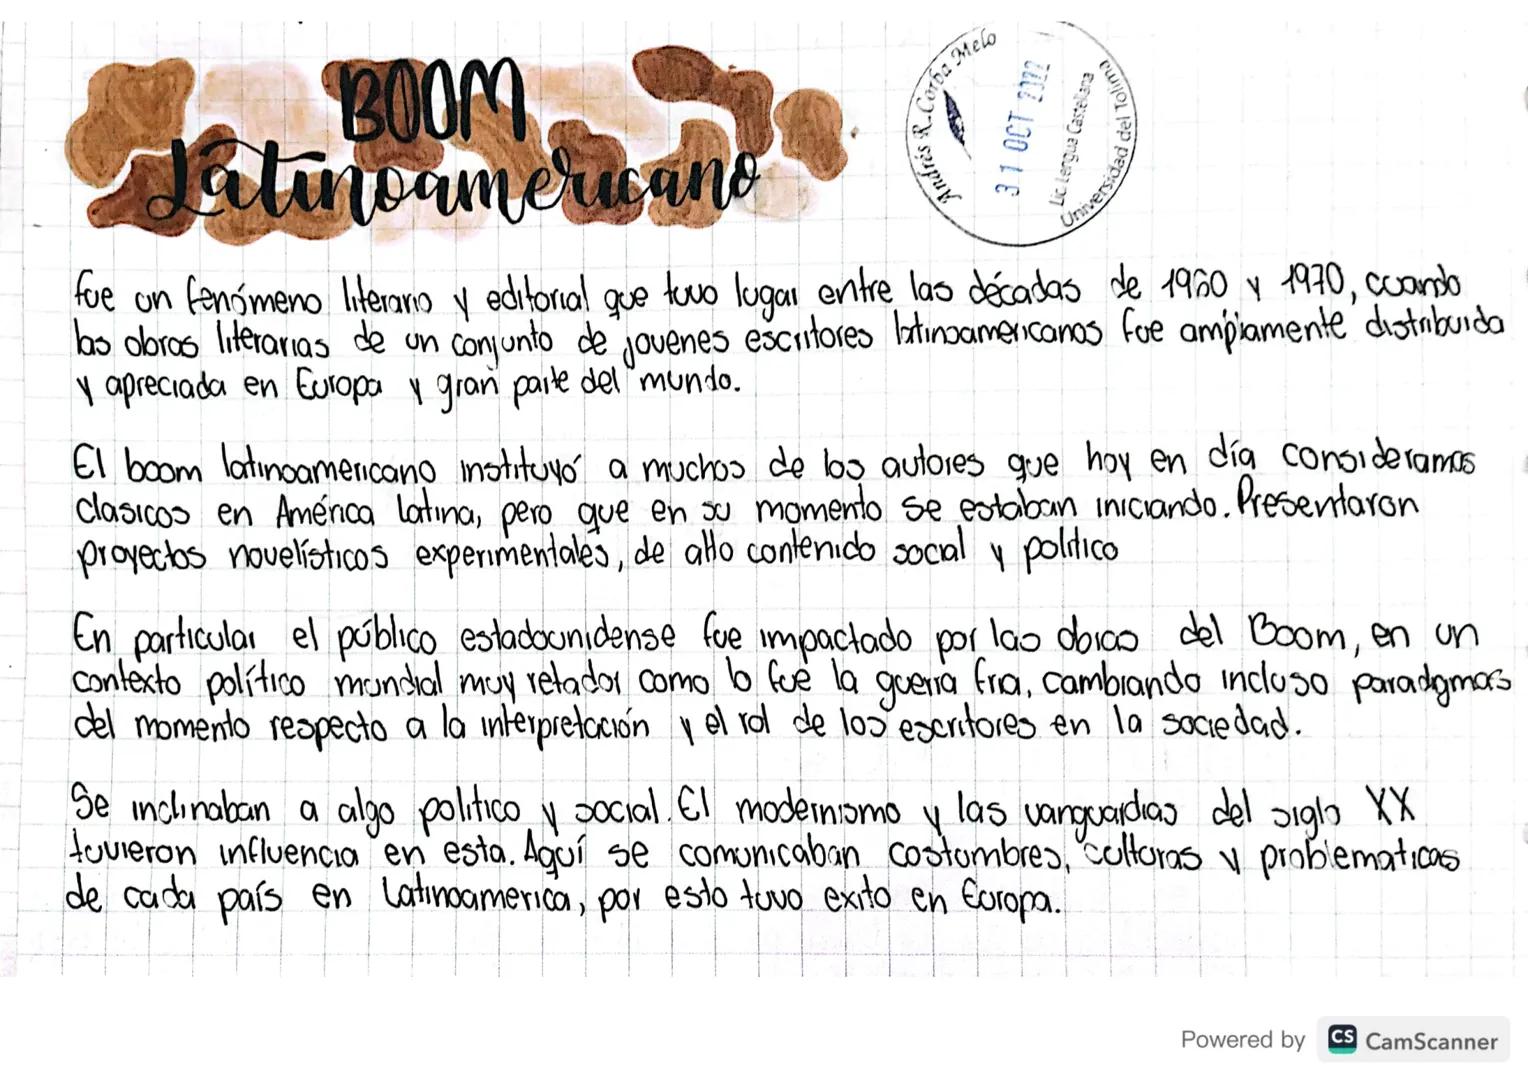 BOOM
Latinoamericano
Andrés R. Corba Melo
31 OCT 2022
Lic. Lengua Castellana
Universidad del Tolima
fue un fenómeno literario y editorial que tuvo lugar entre las décadas de 1960 y 1970, cuando
las obras literarias de un conjunto de jovenes escritores latinoamericanos fue ampiamente distribuida
y apreciada en Europa y gran parte del mundo.
El boom latinoamericano instituyó a muchos de los autores que hoy en día consideramos
clasicos en América Latina, pero que en su momento se estaban iniciando. Presentaron
proyectos novelísticos experimentales, de alto contenido social y politico
En particular el público estadounidense fue impactado por las obras del Boom, en un
contexto político mundial muy retador como lo fue la guerra fria, cambiando incluso paradigmas
del momento respecto a la interpretación y el rol de los escritores en la sociedad.
Se inclinaban a algo politico y social. El modernismo y las vanguardias del siglo XX
tuvieron influencia en esta. Aquí se comunicaban costumbres, culturas y problematicas
de cada país en Latinoamerica, por esto tuvo exito en Europa.
Powered by CS CamScanner